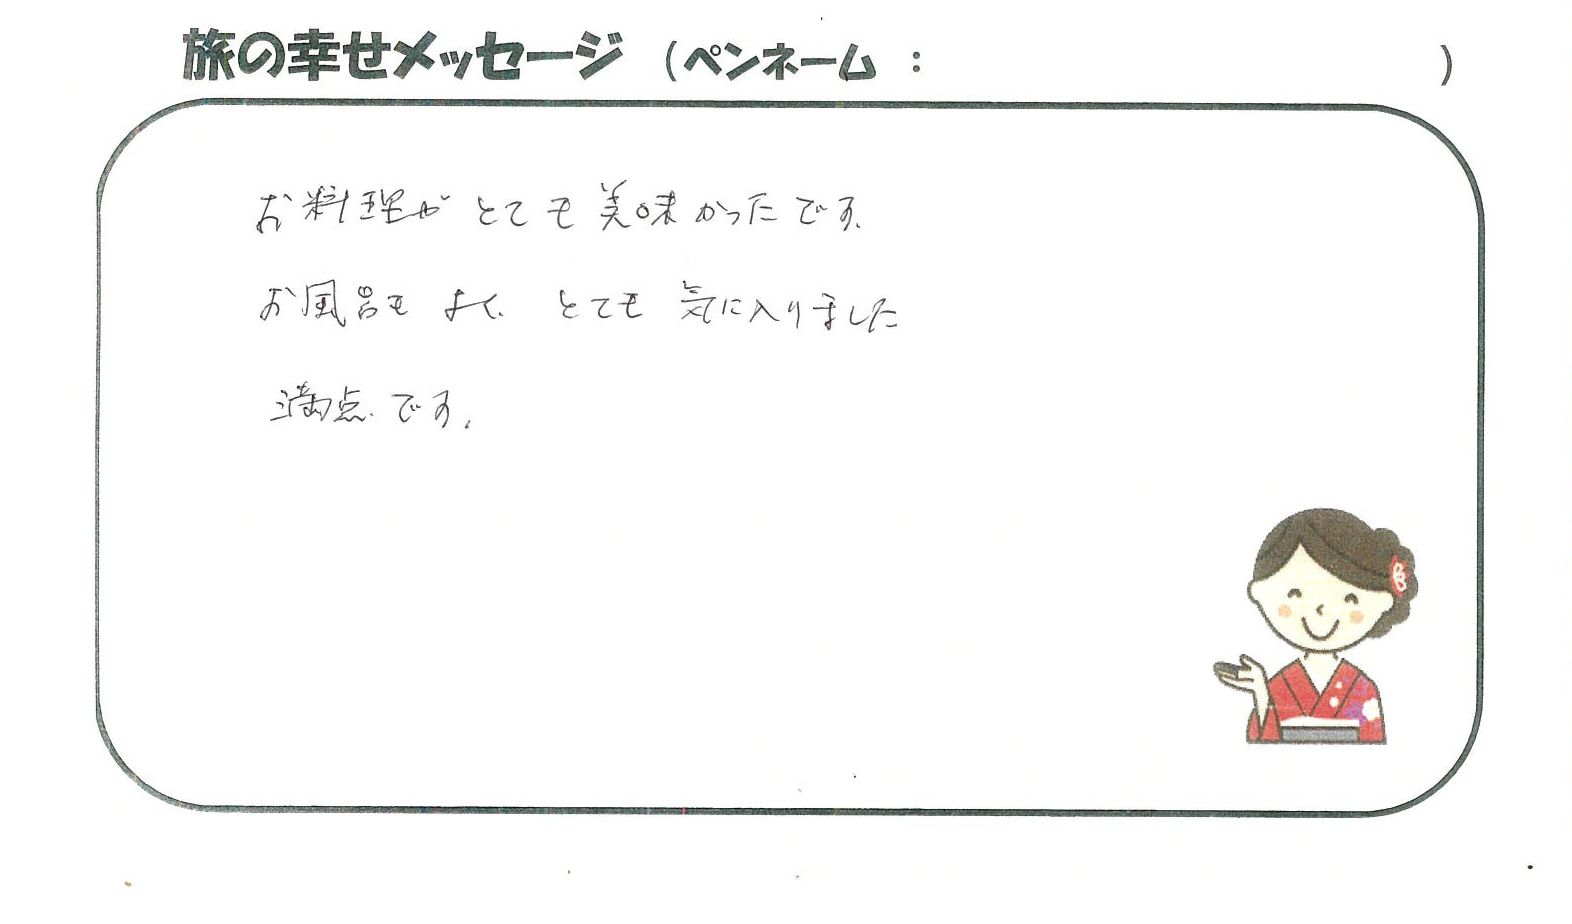 旅の幸せメッセージ （ペンネーム ： ）
お料理がとても美味かったです。
お風呂もよく、とても気に入りました
満点です。